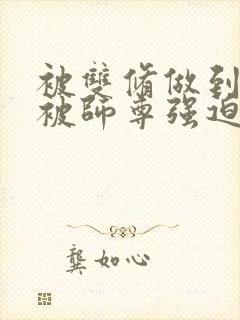 被雙脩做到
被師尊强迫
龔如心